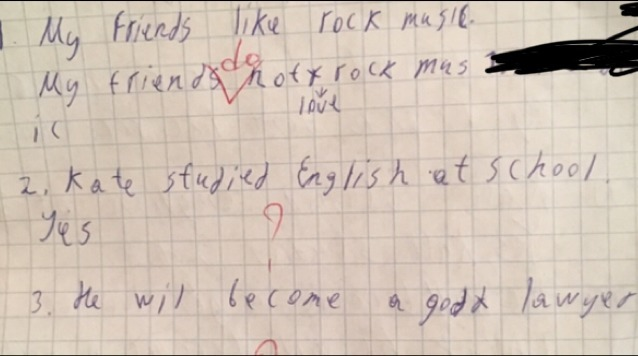 1. My friends like rock music.
do
My friends not rock mus
love
ic
2. Kate studied English at school.
Yes
?
3. He wil become a good lawyer